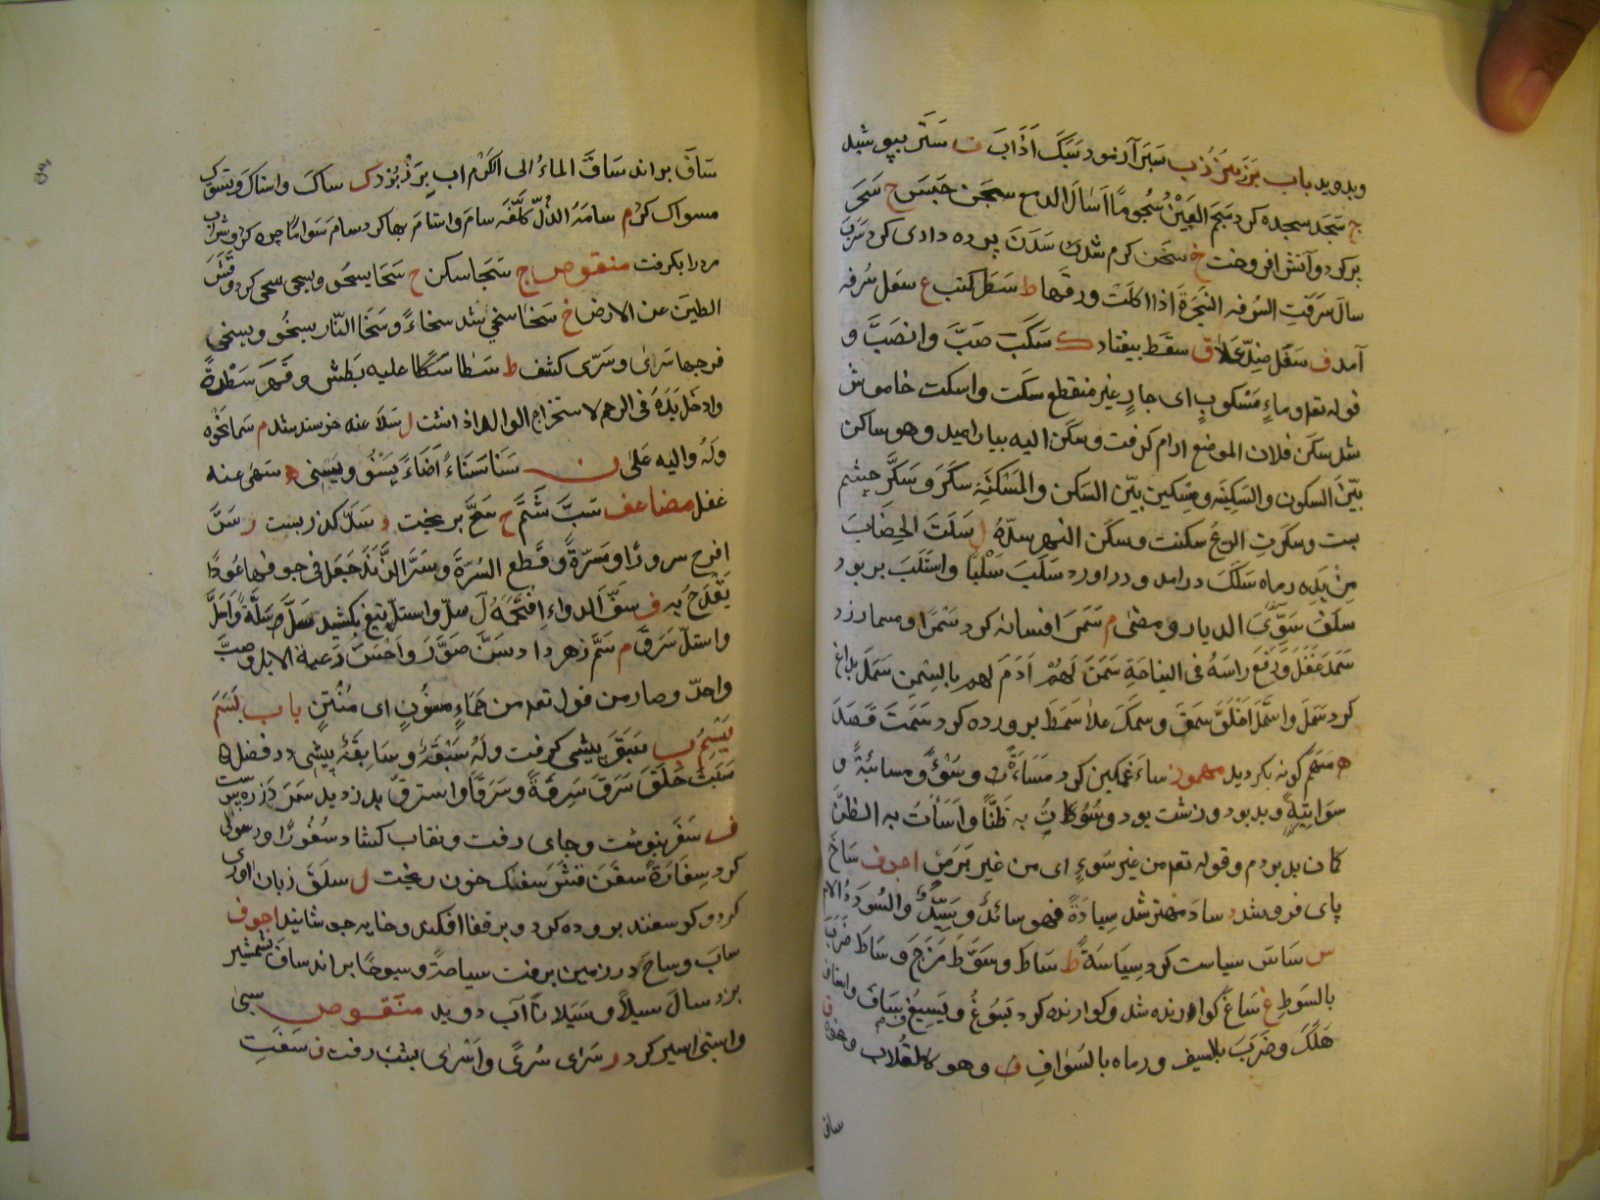 وبدوید باب بَرَزَ یَبْرُزُ ب سَبَرَ آزمود سَبَكَ اَذَابَ ت سَتَرَ بپوشید
ج سَجَدَ سجده کرد سَجَمَ العَیْنُ سُجُومًا اَسَالَ الدمع سجَنَ حَبَسَ ح سَجَرَ
پر کرد و آتش افروخت خ سخَن کرم شد ك سَدَنَ پرده داری کرد
سال سَرَفَتِ السُرفه الشجَرَةَ اذا اکلت ورقها ط سَطَرَ کتب ع سعَل سُرفه
آمد ف سَفَلَ ضدّ علا ق سقَط بیفتاد ك سَكَبَ صَبَّ وانصَبَّ و
قوله تعه وماءٍ مَسْکوبٍ ای جارٍ غیر منقطع سکَت واسکت خاموش
شد سکَن فلان الموضع ارام کرفت وسکَن الیه بیارامید وهو ساکن
بیّن السکون والسَکِینَه ومِسکین بیّن السکن والمَسْکَنَةِ سکَرَ وسَکَّرَ چشم
بست وسکَرَتِ الریحُ سکنت وسکَن النهر سدّهُ ل سَلَتَ الخِضَابَ
مِنْ یَدِه رماه سَلَكَ درامد ودراورد سَلَبَ سَلْبًا واستَلَبَ بربود
سلَفَ سَوَّی الدیار ومضیٰ م سَمَرَ افسانه کرد سَمْرًا ومسمار زد
سَمَدَ غَفَلَ ورَفَعَ راسَهُ فی النیاحَةِ سَمَنَ لَهُمْ اَدَمَ لهم بالسَمنِ سَمَلَ بداغ
کرد سَمَلَ واَسْمَلَ اَخْلَقَ سمَقَ وسمَكَ علا سَمَطَ برورده کرد سَمَتَ قَصَدَ
ه سَهَم کونه بکردید مهموز ساءَ غمکین کرد مَسَاءَةً وسَوْءً ومسائیَةً و
سوائِیَةً وبد بود وزشت بود وسُؤْتُ به ظَنًّا واَسَأْتُ به الظنَّ
کمان بد بردم وقوله تعه من غیر سَوءٍ ای من غیر بَرَصٍ اجوف سَاخَ
پای فرو شد د سادَ مهتر شد سِیادَةً فهو سائدٌ وسَیِّدٌ والسُودَدُ الاسم
س سَاسَ سیاست کرد سِیَاسَةً ط ساط وسَوَّطَ مَزَجَ وسَاطَ ضَرَبَ
بالسَوطِ غ سَاغَ کوارنده شد وکوارنده کرد یَسُوغُ ویَسِیغُ ف سَافَ واساف
هَلَكَ وضَرَبَ بالسیف ورماه بالسَوافِ ف وهو کالقُلاب
ساق
سَاقَ براند سَاقَ الماءُ الی الکَرْم اب بِرَزْ بُزْد ك ساكَ واستاكَ وتسَوَّكَ
مسواك کرد م سامَهُ الذُلّ کَلَّفَه سامَ واستامَ بها کرد سامَ سَوَامًا چره کرد
مر درا بکرفت منقوص ج سَجَا سکن ح سَحَا یسحُو ویسحی سحی کرد وقشَر
الطینَ عن الارض خ سَخَا سخی شد سخاءً وسَخَا النّار یسخُو ویسخی
فرجها سَرَیٰ وسَرّی کشف ط سَطا سَطْا علیه بَطَش وقَهَرَ سَطْوَةً
وادخَل یَدَهُ فی الرحم لاستخراج الولد اذا نشب ل سَلَا عنه خرسند شد م سَمَا نَحْوَه
ولَهُ والیه عَلیٰ ن سَنَا سَنَاءً اَضَاءَ یَسْنُو ویَسنی ه سَهیٰ عنه
غفل مضاعف سَبَّ شَتَمَ ح سَحَّ بریخت د سَدَّ کذر بست ر سَرَّ
افرح سرورًا ومَسَرَّةً وقَطع السُرّةَ وسَرَّ الزَّنْدَ جَعَل فی جوفها عُودًا
یَقْدَحُ به ف سفَّ الدواءَ اِقتَحَمَهُ ل سلّ واستلّ تیغ بکشید سَلَّ صَلَّةً واَسَلَّ
واستلّ سَرَقَ م سَمَّ زهر داد سَنَّ صَوَّرَ واَحْسَنَ رَعیة الابل وصَبَّ
واحدّ وصار من قوله تعه من حَمَاءٍ مسنُونٍ ای مُنْتِنٍ باب بَسَمَ
یَبْسِمُ ب سَبَقَ پیشی کرفت ولَهُ سَبْقَةٌ وسَابِقَةٌ پیشی در فضل
سَبَتَ حَلَقَ سَرَقَ سَرِقَةً وسَرَقًا واسترق بدزدید
ف سَفَرَ بنوشت وجای رفت ونقاب کشاد سُفُورًا ورسولی
کرد سِفَارَةً سفَنَ قَشَرَ سفَكَ خون ریخت ل سلَقَ زبان اوری
کرد وکوسفند بروده کرد وبرقفا افکند وخایه جوشانید اجوف
سابَ وساحَ در زمین برفت سیاحةً وسیوحًا براند سافَ بشمشیر
بزد سالَ سیلاً وسَیَلانًا آب دوید منقوص سبیٰ
واستبیٰ اسیر کرد ر سَرَای سُریً واَسْریٰ بشب رفت ف سَفَتِ